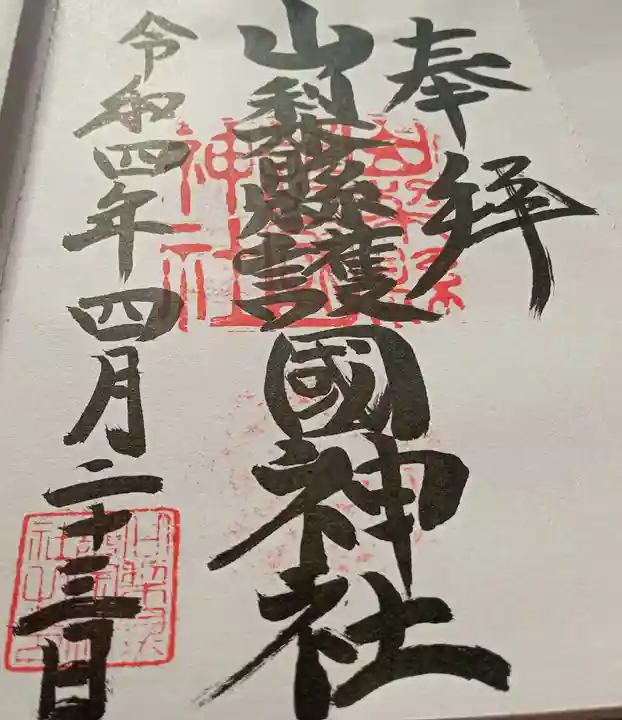 奉拝
山梨縣護國神社
令和四年四月二十三日